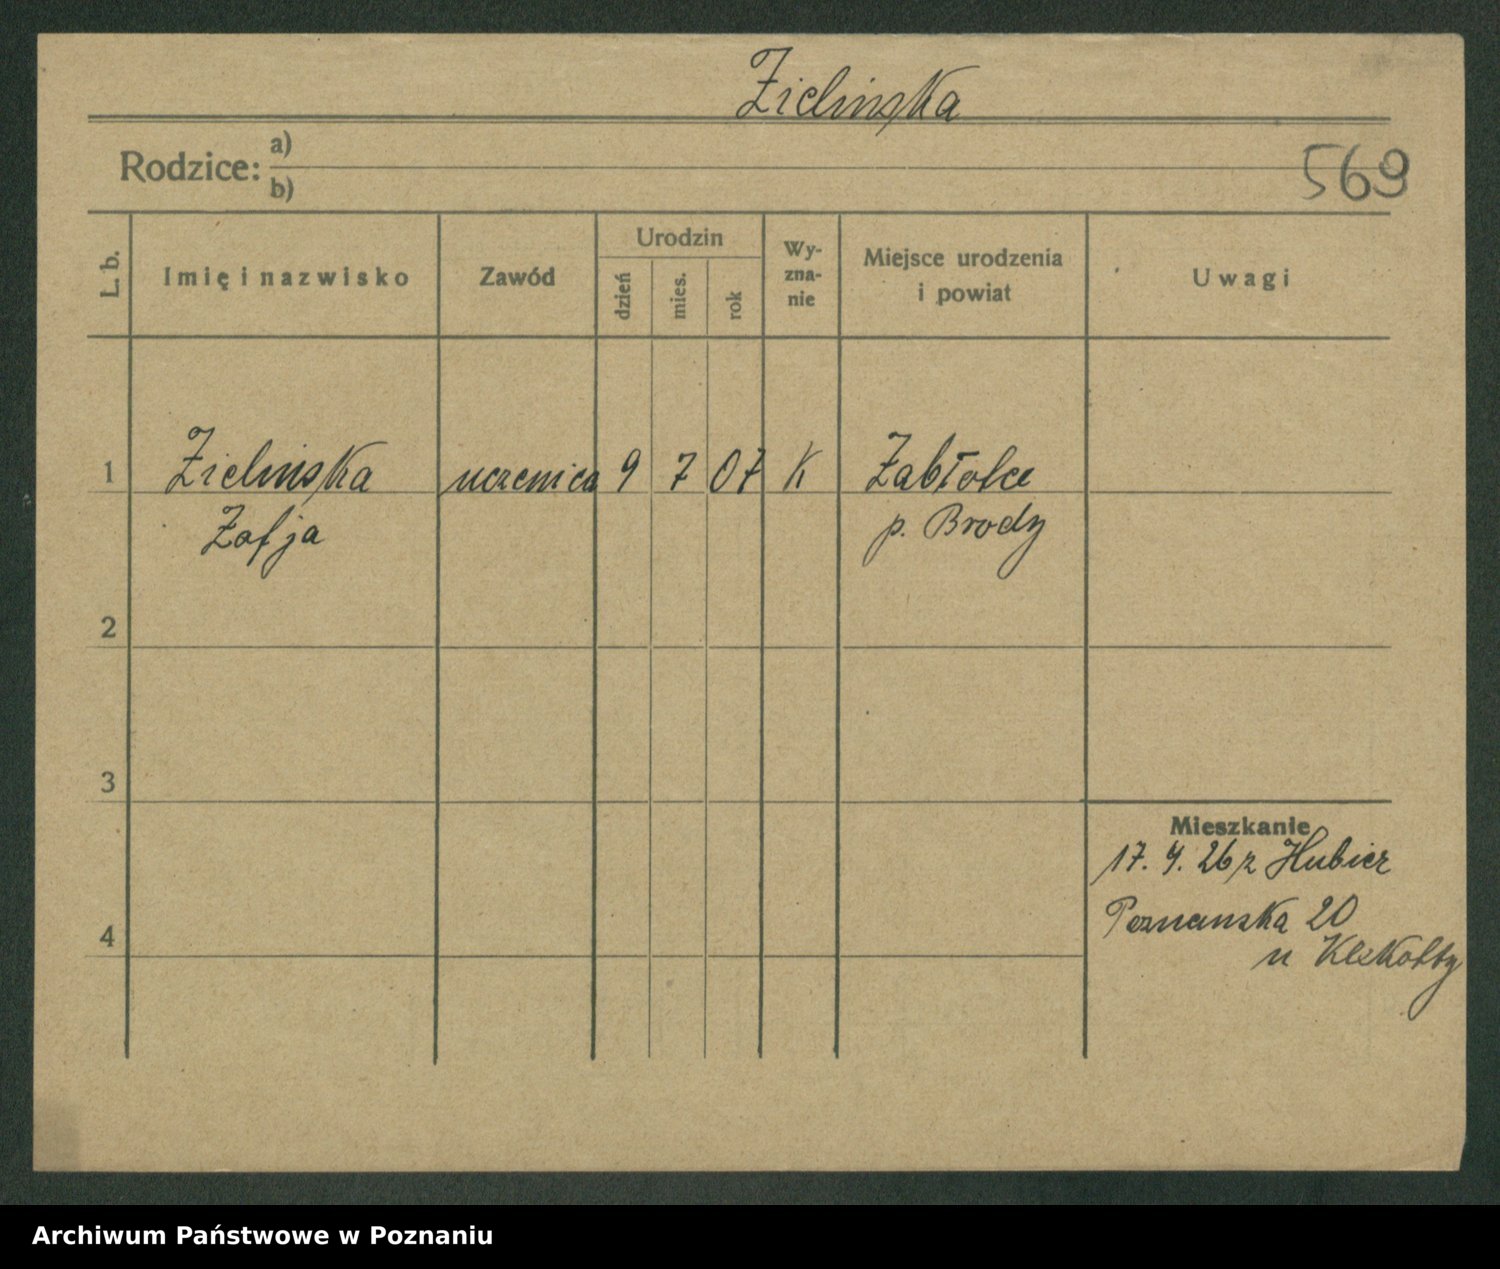 Zielinska
Rodzice: a)
b)
569
L. b.
Imię i nazwisko
Zawód
Urodzin
dzień
mies.
rok
Wy-
zna-
nie
Miejsce urodzenia
i powiat
Uwagi
1 Zielinska uczenica 9 7 07 K Zabłotce
Zofja p. Brody
2
3
Mieszkanie
17. 9. 26 z
Poznanska 20
4
u
Archiwum Państwowe w Poznaniu